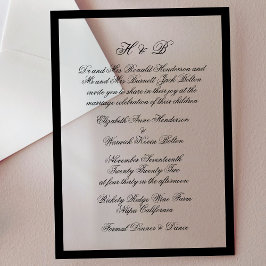 H & B
Dr and Mrs Ronald Henderson and
Mr and Mrs Burnett Jack Bolton
invite you to share in their joy at the
marriage celebration of their children
Elizabeth Anne Henderson
&
Warwick Bolton
November Seventeenth
Twenty Twenty Two
at four thirty in the afternoon
Rickety Ridge Wine Farm
Napa California
Formal Dinner & Dance